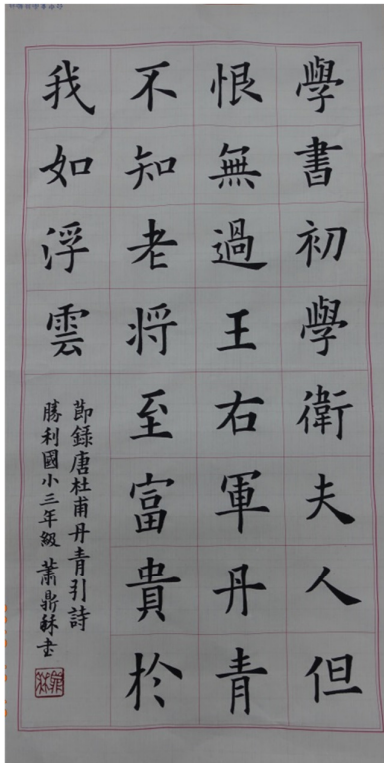 學書初學衛夫人但
恨無過王右軍丹青
不知老將至富貴於
我如浮雲
節錄唐杜甫丹青引詩
勝利國小三年級 蕭鼎秝書